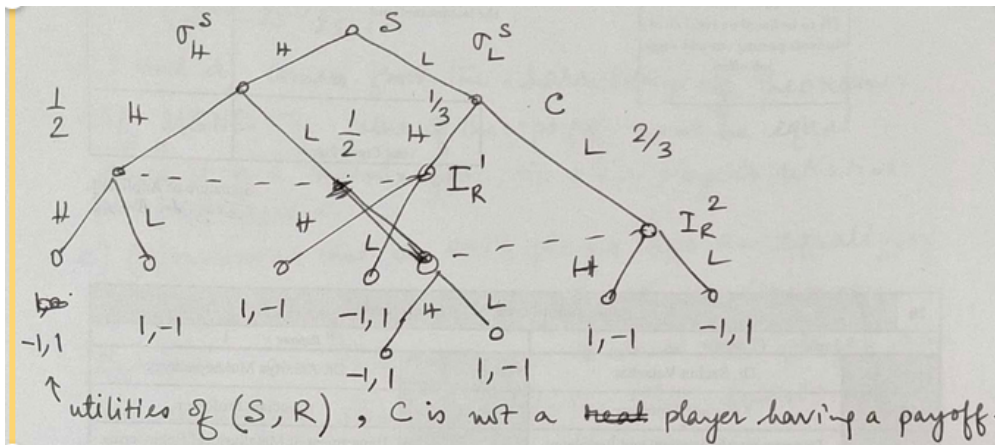 σ_H^S H S σ_L^S
L
1/2 H L 1/2 1/3 H C
L 2/3
I_R^1
H L H L I_R^2
H L
1,-1 1,-1 -1,1 H L 1,-1 -1,1
-1,1
-1,1 1,-1
utilities of (S, R) , C is not a real player having a payoff.